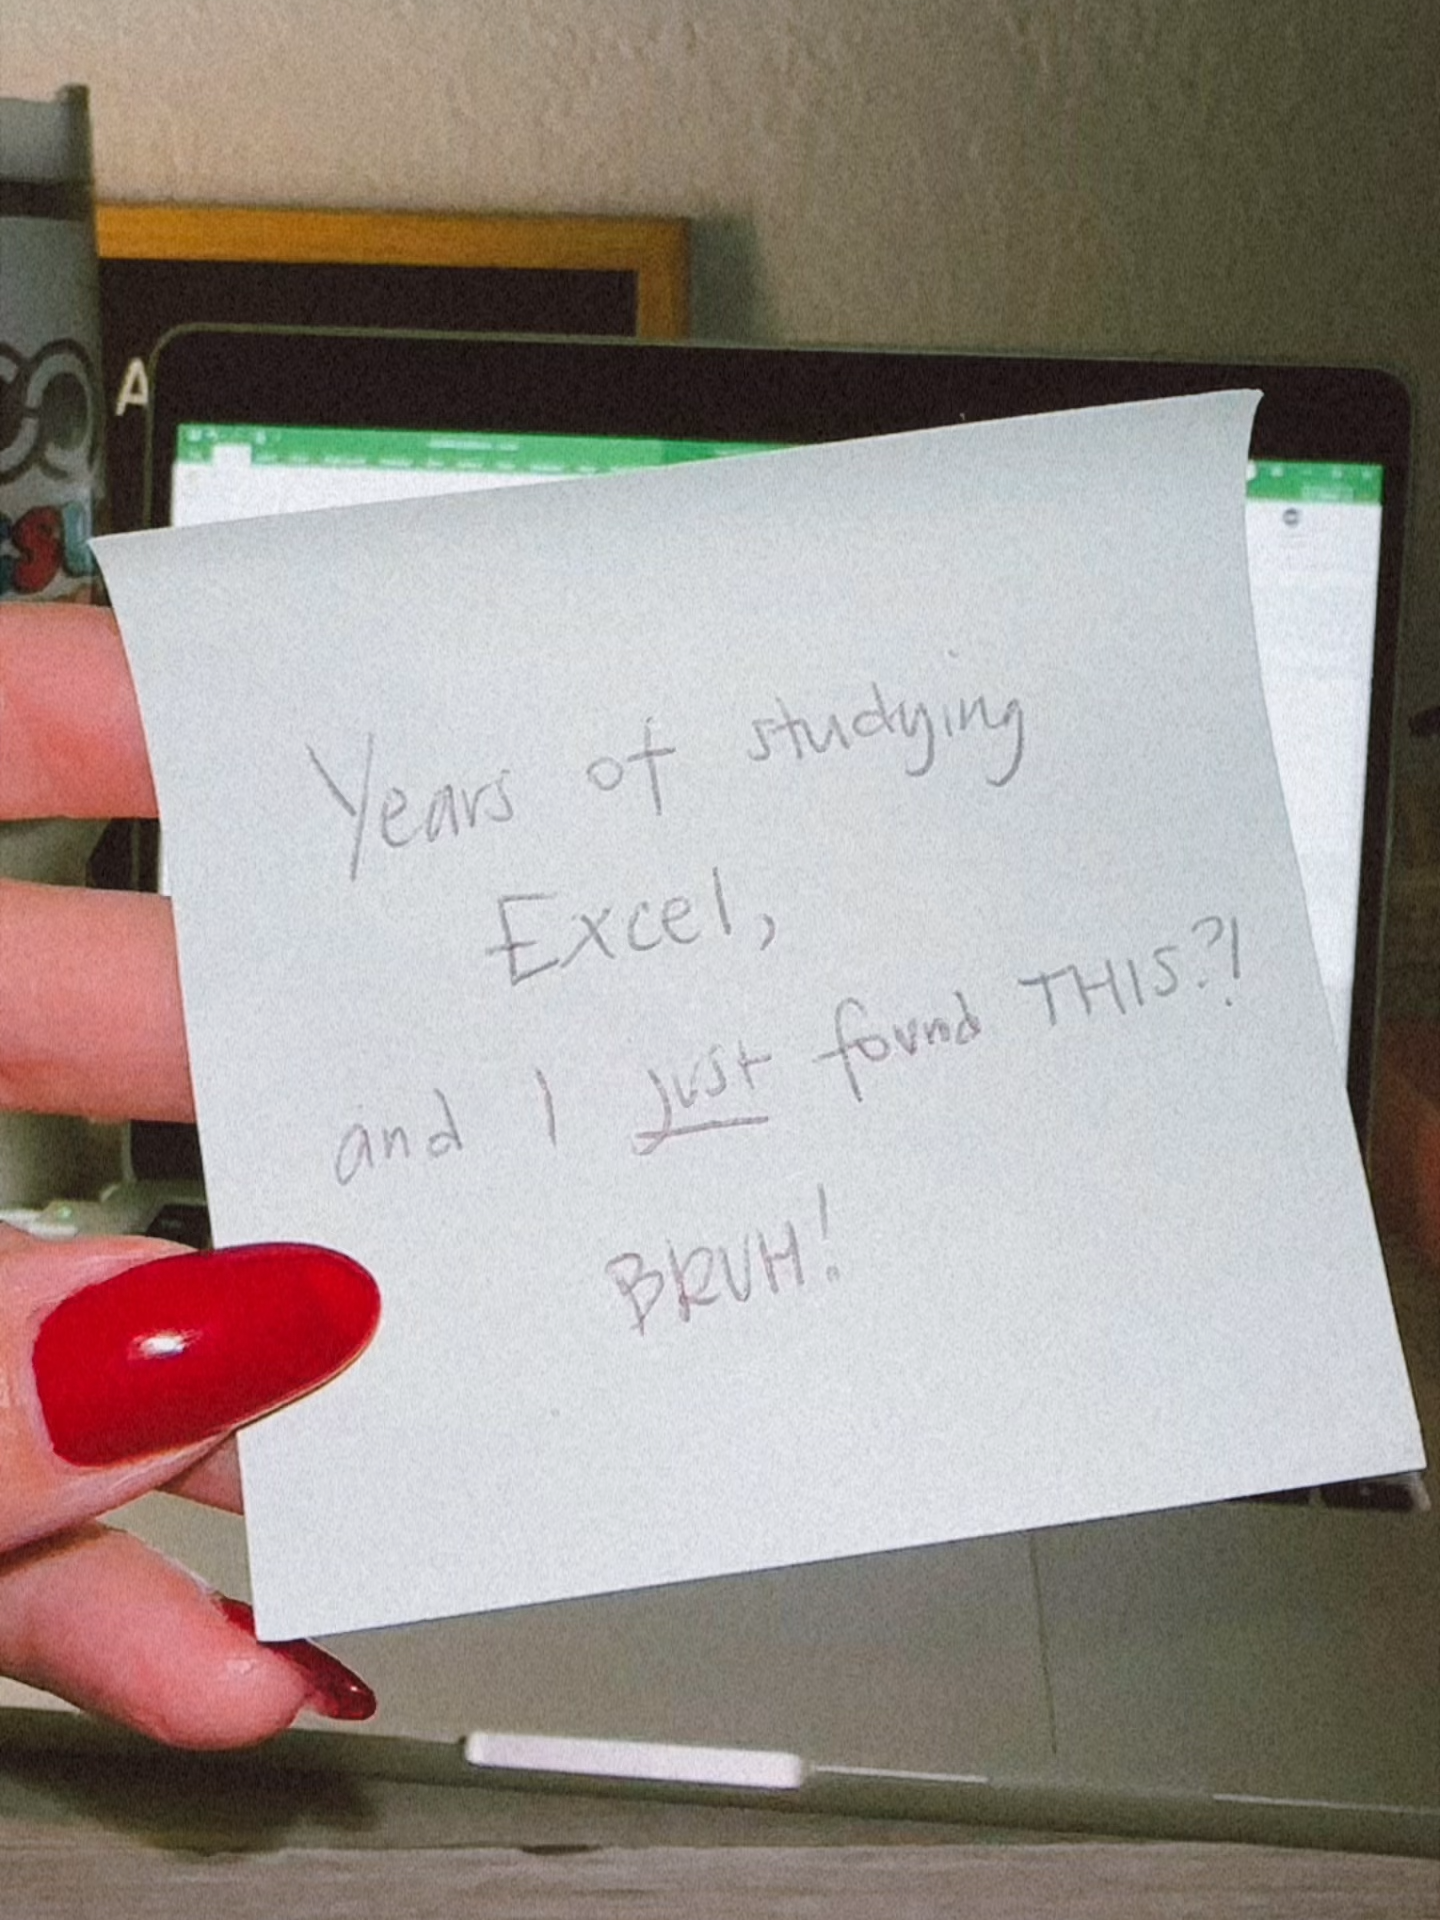 A
Years of studying
Excel,
and I just found THIS?!
BRUH!